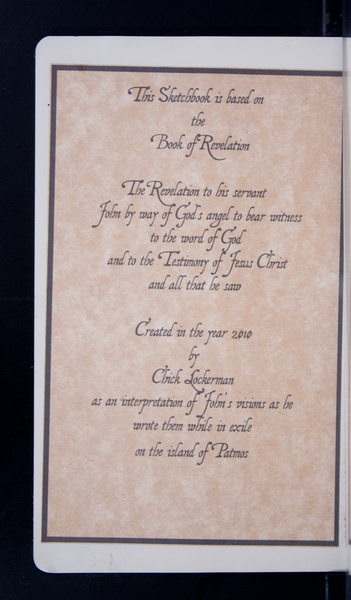 This Sketchbook is based on
the
Book of Revelation
The Revelation to his servant
John by way of God's angel to bear witness
to the word of God
and to the Testimony of Jesus Christ
and all that he saw
Created in the year 2010
by
Chick Lockerman
as an interpretation of John's visions as he
wrote them while in exile
on the island of Patmos